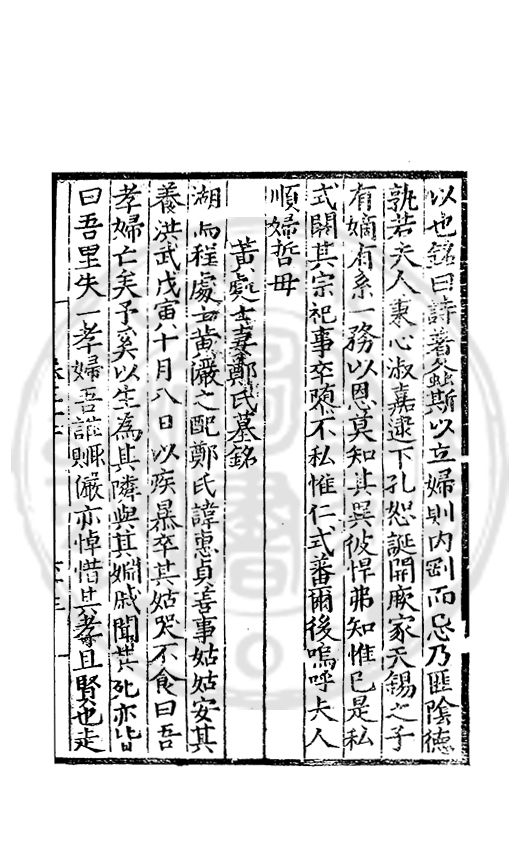 以也銘曰詩著螽斯以立婦則内剛而忌乃匪陰德
孰若夫人秉心淑嘉逮下孔恕誕開厥家天錫之子
有嫡有系一務以恩莫知其異彼悍弗知惟已是私
式闕其宗祀事卒隳不私惟仁式蕃爾後嗚呼夫人
順婦哲母
黃處士妻鄭氏墓銘
湖山程處士黃儼之配鄭氏諱惠貞善事姑姑安其
養洪武戊寅十月八日以疾暴卒其姑哭不食曰吾
孝婦亡矣予奚以生為其隣與其姻戚聞其死亦皆
曰吾里失一孝婦吾誰則儼亦悼惜其孝且賢也走